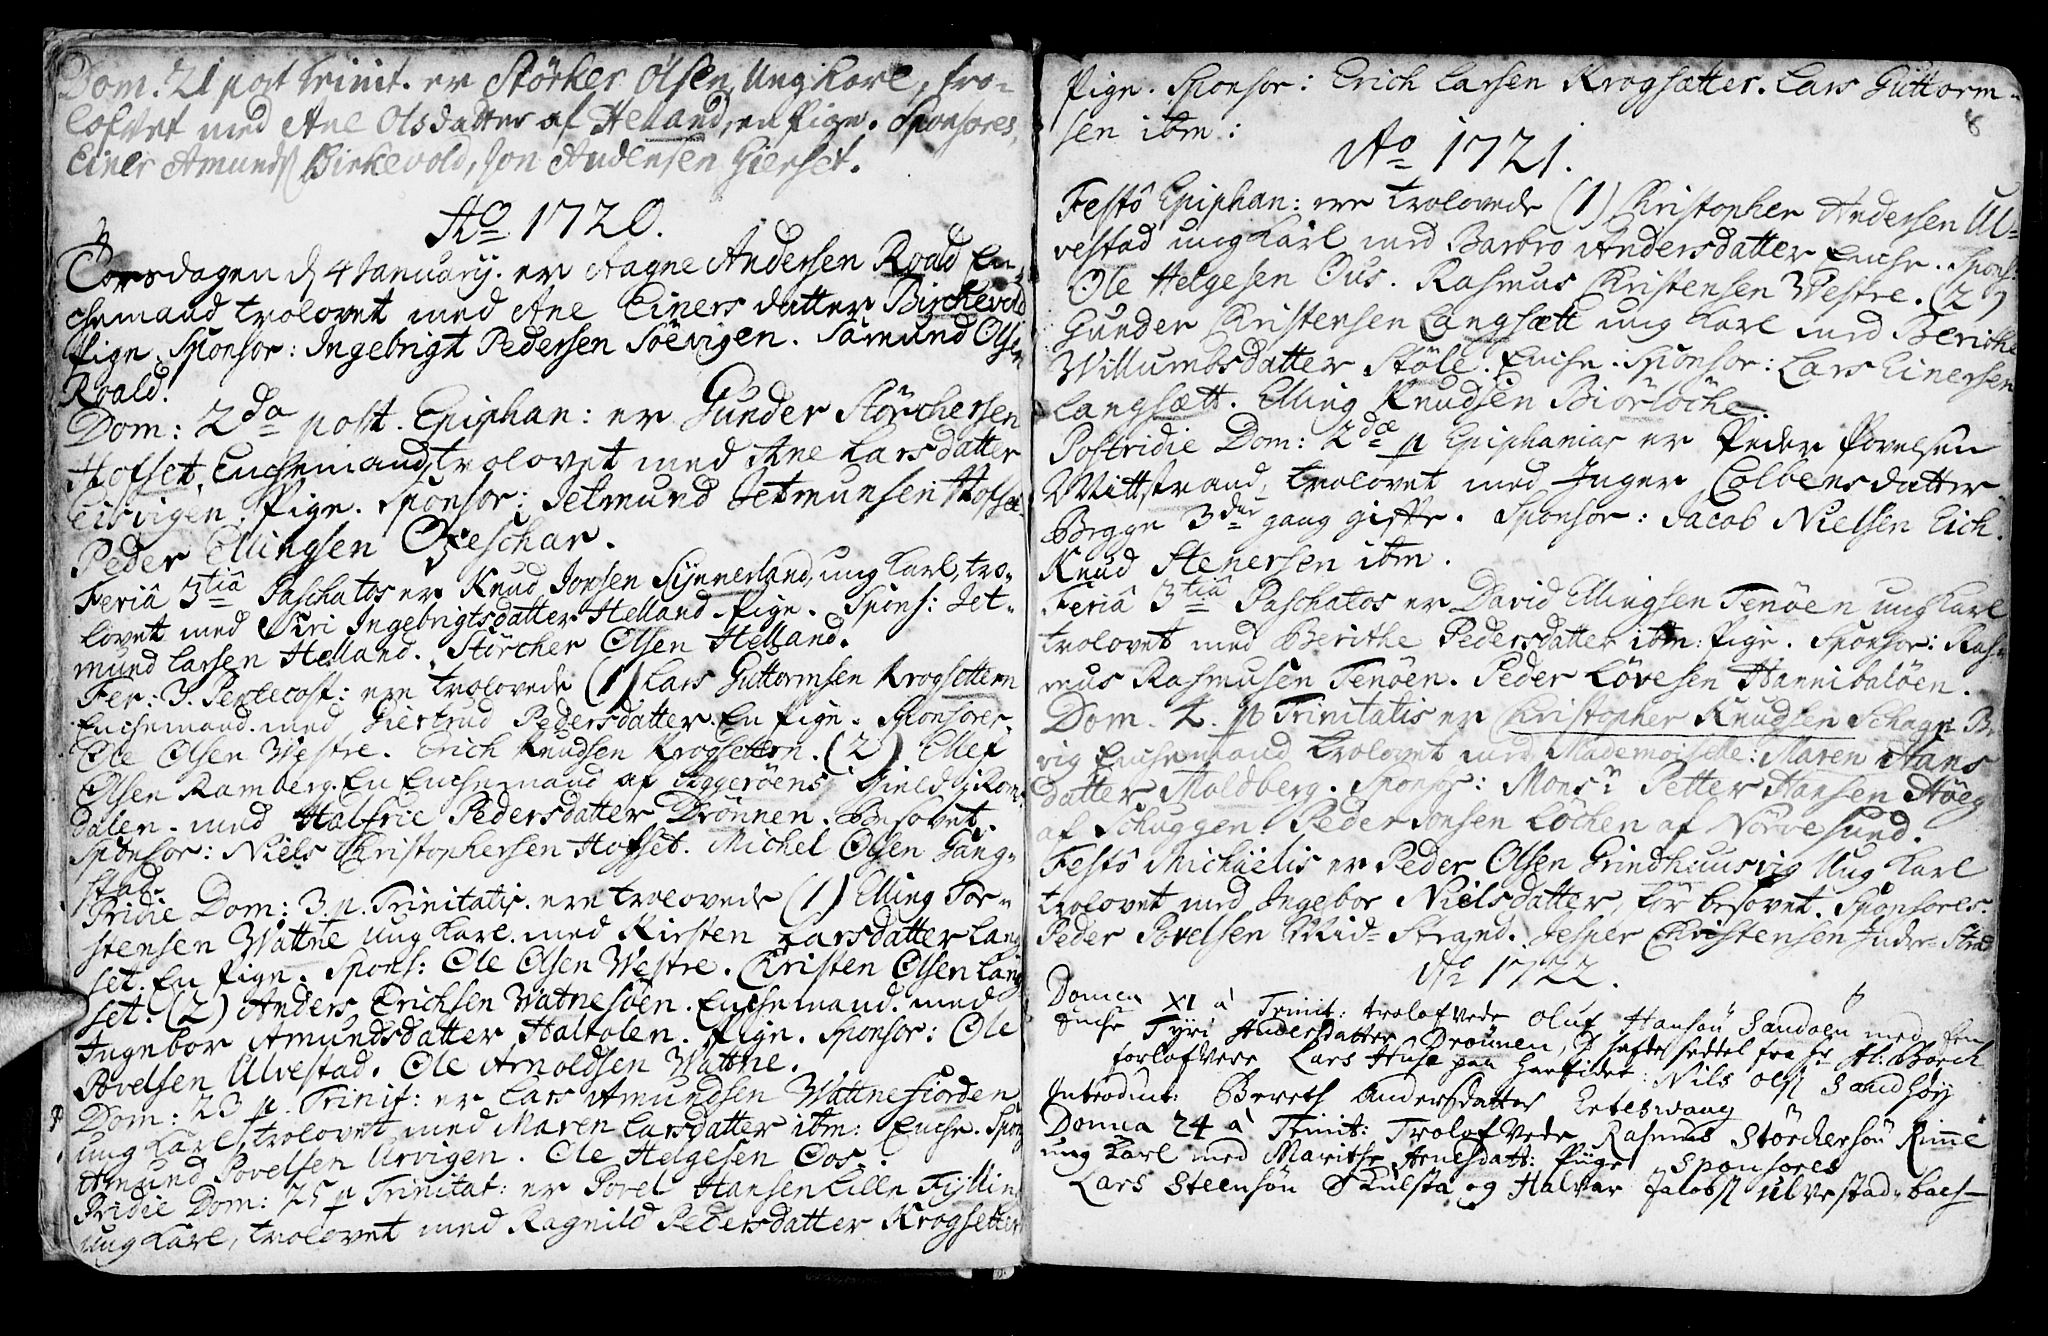 Dom. 21 post trinit. er Störker Olsen, Ung Karl, tro-
lofvet med Ane Olsdatter af Helland, en Pige. Sponsores,
Einer Amunds. Birkevold, Jon Andersen Gierset.
Ao 1720.
Torsdagen d. 4 January. er Aagne Andersen Roald En-
chemand trolovet med Ane Einersdatter Birchevold
Pige. Sponsor: Ingebrigt Pedersen Söevigen. Samund Olsen
Roald.
Dom: 2da post. Epiphan: er Gunder Störchersen
Hofset, Enchemand, trolovet med Ane Larsdatter
Eisvigen. Pige. Sponsor: Jetmund Jetmunsen Hofsæ-
Peder Ellingsen Oxeschar.
Feriâ 3tiâ Paschatos er Knud Jonsen Synnerland, ung Karl, tro-
lovet med Siri Ingebrigtsdatter Helland Pige. Spons: Jet-
mund Larsen Helland. Störcher Olsen Helland.
Fer: 3. Pentecost: ere trolovede (1) Lars Guttormsen Krogsettern
Enchemand. med Giertrud Pedersdatter. En Pige. Sponsorer.
Ole Olsen Westre. Erich Knudsen Krogsettern. (2) Ellef
Olsen Ramberg. En Enchemand af Aggeröens Gield i Rom-
dalen. med Halfrie Pedersdatter Drönnen. Besovet.
Sponsor: Niels Christophersen Hofset. Michel Olsen Gang-
stad.
Pridie Dom: 3 p. Trinitatis. ere trolovede (1) Elling Tor-
stensen Wattne ung Karl. med Kirsten Larsdatter Lang
set. En Pige. Spons: Ole Olsen Westre. Christen Olsen Lang
set. (2) Anders Erichsen Watnesöen. Enchemand. med
Ingebor Amundsdatter Haltolen. Pige. Sponsor: Ole
Povelsen Ulvestad. Ole Arnoldsen Wattne.
Dom: 23 p. Trinit: er Lars Amundsen Wattnefiorden
ung Karl, trolovet med Maren Larsdatter ibm: Enche. Spons
Amund Povelsen Urvigen. Ole Helgesen Oos.
Pridie Dom: 25 p Trinitat: er Povel Hansen Lille Fyllin
ung Karl, trolovet med Ragnild Pedersdatter Krogsetter
Pige. Sponsor: Erich Larsen Krogsætter. Lars Guttorm-
sen ibm:
8
Ao 1721.
Festô Epiphan: ere trolovede (1) Christopher Andersen Ul-
vestad ung Karl med Barbro Andersdatter Enche. Spons:
Ole Helgesen Ous. Rasmus Christensen Westre. (2)
Gunder Christensen Langsætt ung Karl med Berithe
Willumbsdatter Störe. Enche. Sponsor: Lars Einersen
Langsætt. Elling Knudsen Biörlöche.
Postridie Dom: 2dæ p Epiphanias er Peder Povelsen
Mittstrand, trolovet med Inger Colbensdatter
Begge 3die gang gifte. Sponsor: Jacob Nielsen Eich.
Knud Stenersen ibm.
Feriâ 3tiâ Paschatos er David Ellingsen Tenöen ung Karl
trolovet med Berithe Pedersdatter ibm: Pige. Sponsor: Ras-
mus Rasmusen Tenöen. Peder Lövesen Hannibalöen.
Dom. 4. p Trinitatis er Christopher Knudsen Schage B-
vig Enchemand trolovet med Mademoiselle: Maren Hans
datter Moldberg. Sponsor: Monsr Petter Hansen Höeg
af Schuggen. Peder Jonsen Löchen af Nörvesund.
Festô Michaelis er Peder Olsen Grindhuusvig Ung Karl
trolovet med Ingebor Nielsdatter, för besovet. Sponsores.
Peder Povelsen Mid-Strand. Jesper Christensen Indre-Strd
Ao 1722.
Domca XI â Trinit: trolofvede Oluf Hansön Sandöen med den
Enche Tyri Andersdatter Drönnen, d hafde seddel fra hr Al: Borch
forlofvere Lars Huse paa Harfiden: Nils Ols. Sandshöy
Introduct: Bereth Andersdatter Erteswaag
Domca 24 â Trinit: Trolofvede Rasmus Störchersön Rimme
ung Karl med Marithe Arnesdatt: Piige Sponsores
Lars Steensön Skulsta og Halvar Jacobs. Ulvestad-bach-